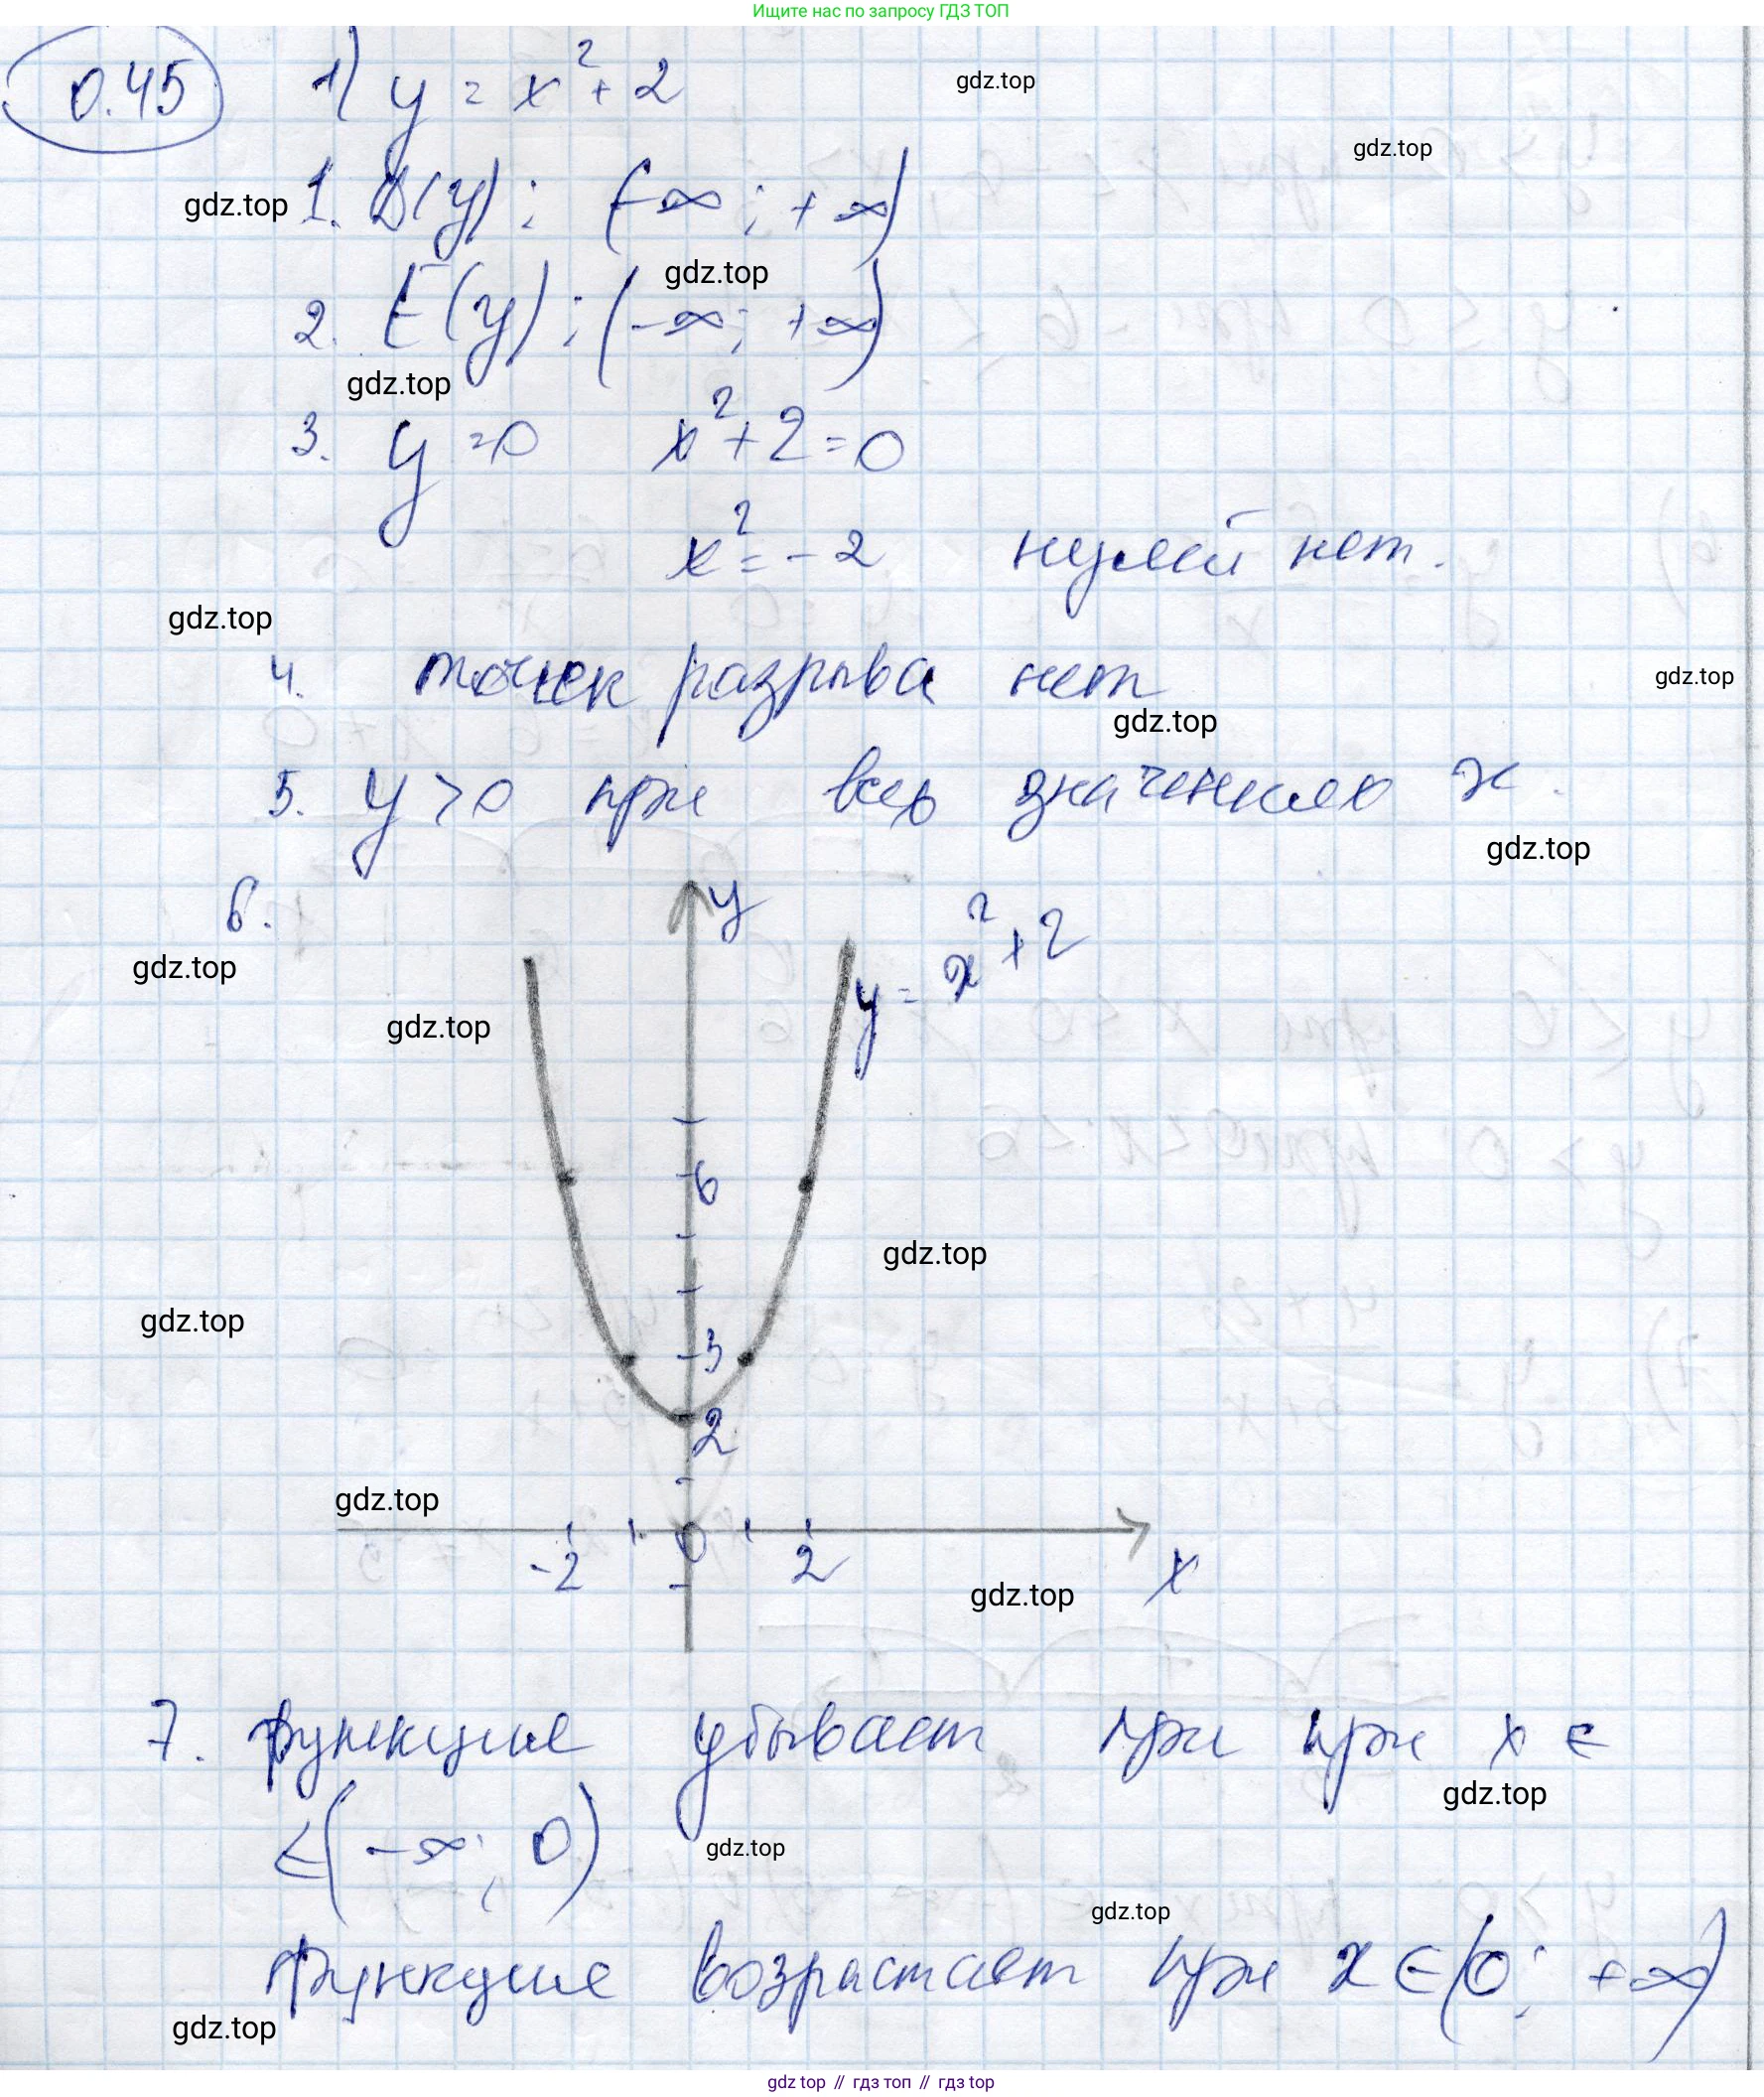 Ищите нас по запросу ГДЗ ТОП
0.45 1) y = x² + 2
gdz.top
gdz.top
gdz.top 1. D(y); (-∞; +∞)
gdz.top
2. E(y); (-∞; +∞)
gdz.top
3. y = 0 x² + 2 = 0
x² = -2 нулей нет.
gdz.top
4. точек разрыва нет
gdz.top
gdz.top
5. y > 0 при всех значениях x.
gdz.top
6.
y
y = x² + 2
gdz.top
gdz.top
6
gdz.top
gdz.top
3
2
gdz.top
-2 0 2 x
gdz.top
7. функция убывает при при x ∈
gdz.top
∈(-∞; 0)
gdz.top
gdz.top
функция возрастает при x ∈ (0; +∞)
gdz.top
gdz top // гдз топ // гдз top